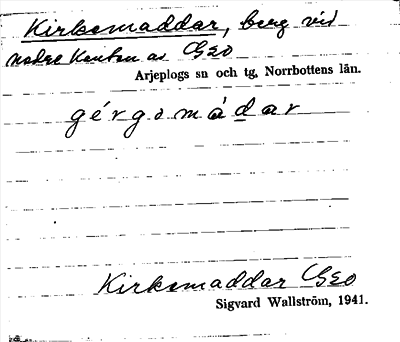 Kirksmaddar, berg vid
nedre kanten av GEO
Arjeplogs sn och tg, Norrbottens län.
gérgɔmádar
Kirkemaddar GEO
Sigvard Wallström, 1941.